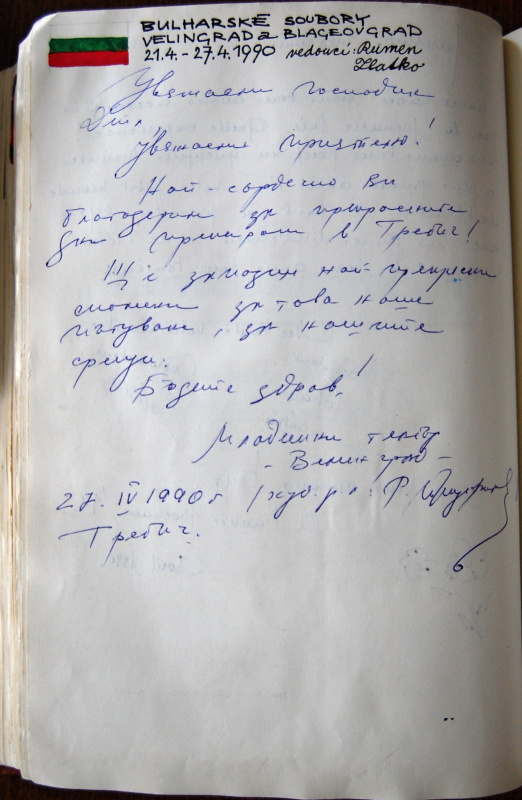 BULHARSKÉ SOUBORY
VELINGRAD a BLAGEOVGRAD
21.4. - 27.4.1990 vedoucí: Rumen
Zlatko
Уважаеми господин
Уважаеми приятелю!
Най-сърдечно Ви
благодарим за прекрасните
дни прекарани в Требич!
Ще запазим най-прекрасни
спомени за това наше
пътуване, за нашите
срещи.
Бъдете здрав!
Младежки театър
- Велинград -
27. IV 1990 г. /худ. р-л: Р.
Требич.